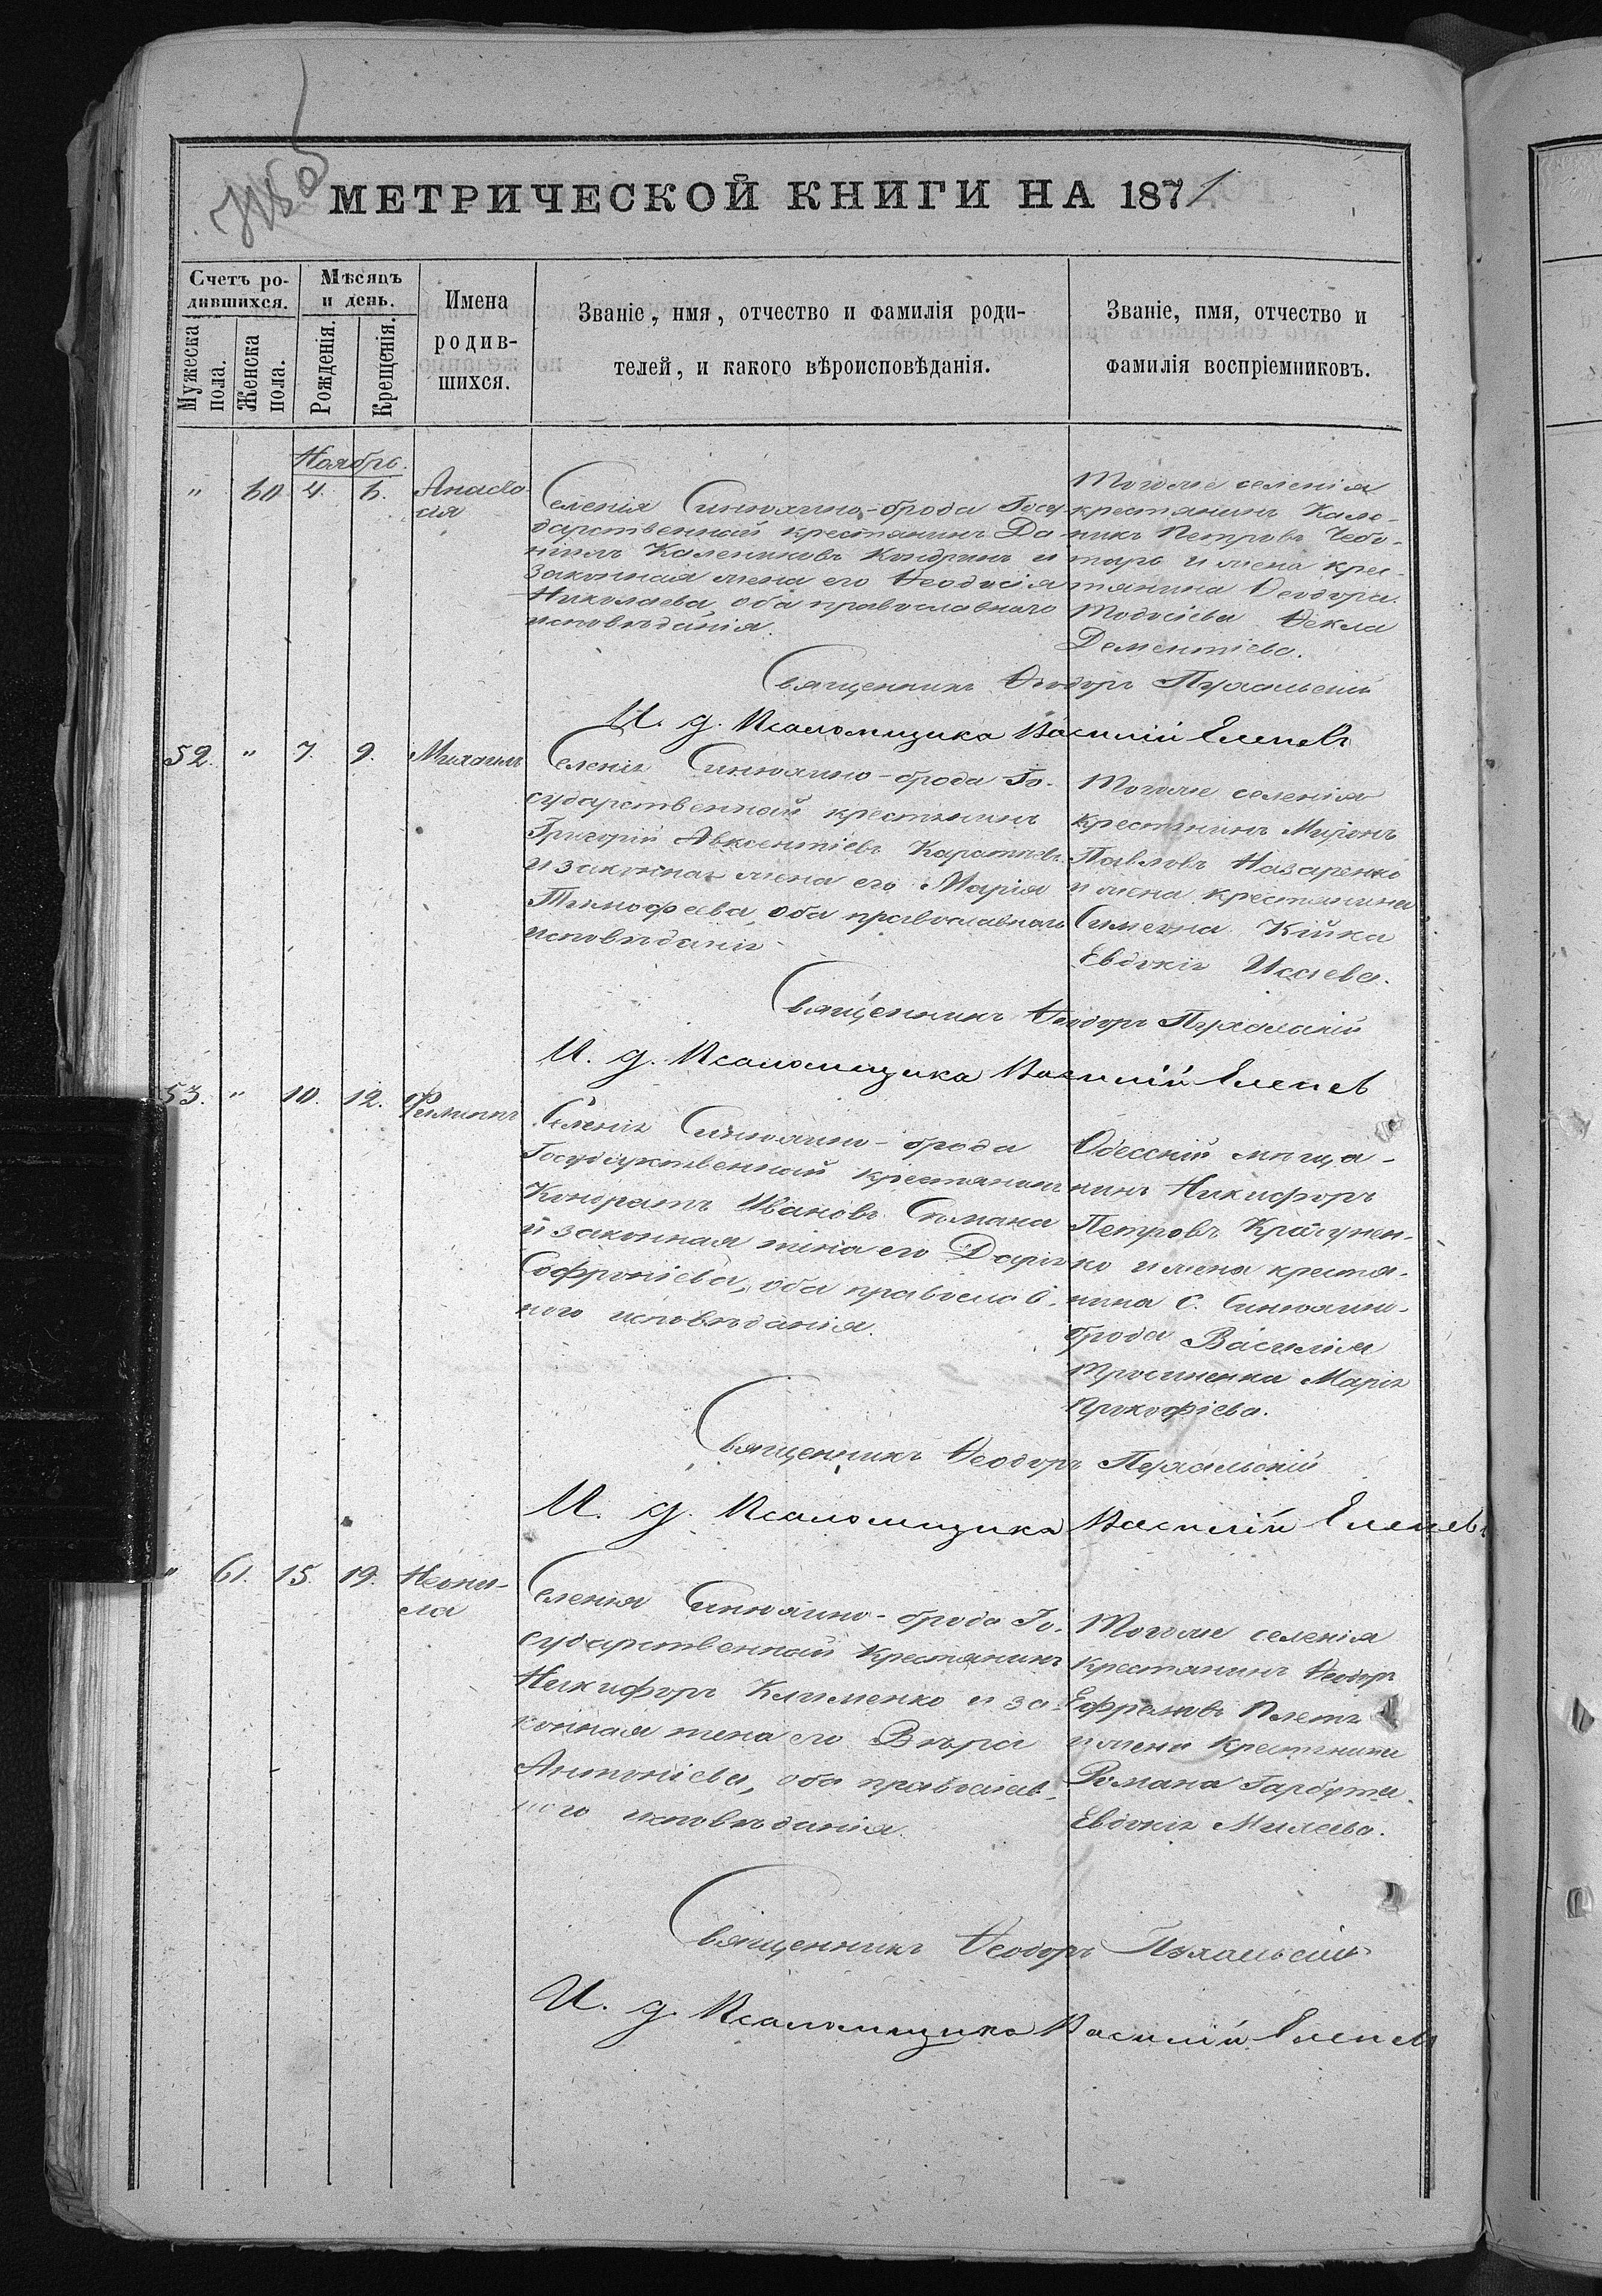 МЕТРИЧЕСКОЙ КНИГИ НА 1871
Счетъ ро-
дившихся.
Мужеска
пола.
Женска
пола.
Мѣсяцъ
и день.
Рожденія.
Крещенія.
Имена
родив-
шихся.
Званіе, имя, отчество и фамилія роди-
телей, и какого вѣроисповѣданія.
Званіе, имя, отчество и
фамилія воспріемниковъ.
Ноябрь.
" 60 4. 6. Анаста-
сія
Селенія Синюхино-брода Госу-
дарственный крестьянинъ Да-
ніилъ Калениковъ Кондринъ и
законная жена его Ѳеодосія
Николаева, оба православнаго
исповѣданія.
Тогоже селенія
крестьянинъ Кале-
никъ Петровъ Чебо-
тарь и жена крес-
тянина Ѳеодора
Тодосіева Ѳекла
Дементіева.
Священникъ Ѳеодоръ Пухальскій
И. д. Псаломщика Василій Елепевъ
52. " 7. 9. Михаилъ
Селенія Синюхино-брода Го-
сударственный крестянинъ
Григорій Авксентіевъ
и законная жена его Марія
Тимофеева, оба православнаго
исповѣданія
Тогоже селенія
крестянинъ Миронъ
Павловъ Назаренко
и жена крестянина
Симеона Кійка
Евдокія Исаева.
Священникъ Ѳеодоръ Пухальскій
И. д. Псаломщика Василій Елепев
53. " 10. 12. Филиппъ
Селенія Синюхино-брода
Государственный крестянинъ
Кондратъ Ивановъ
и законная жена его Дарія
Софроніева, оба православ-
ного исповѣданія.
Одесскій мѣща-
нинъ Никифоръ
Петровъ Крагунен-
ко и жена крестя-
нина с. Синюхино-
брода Василія
Марія
Прокофіева.
Священникъ Ѳеодоръ Пухальскій
И. д. Псаломщика Василій Елепевъ
" 61. 15. 19. Неони-
ла
Селенія Синюхино-брода Го-
сударственный крестянинъ
Никифоръ Клименко и за-
конная жена его Вѣра
Антоніева, оба православ-
ного исповѣданія.
Тогоже селенія
крестянинъ Ѳеодоръ
Ефремовъ Плетъ
и жена крестянина
Романа Гарбуза
Евдокія Михеева.
Священникъ Ѳеодоръ Пухальскій
И. д. Псаломщика Василій Елепев